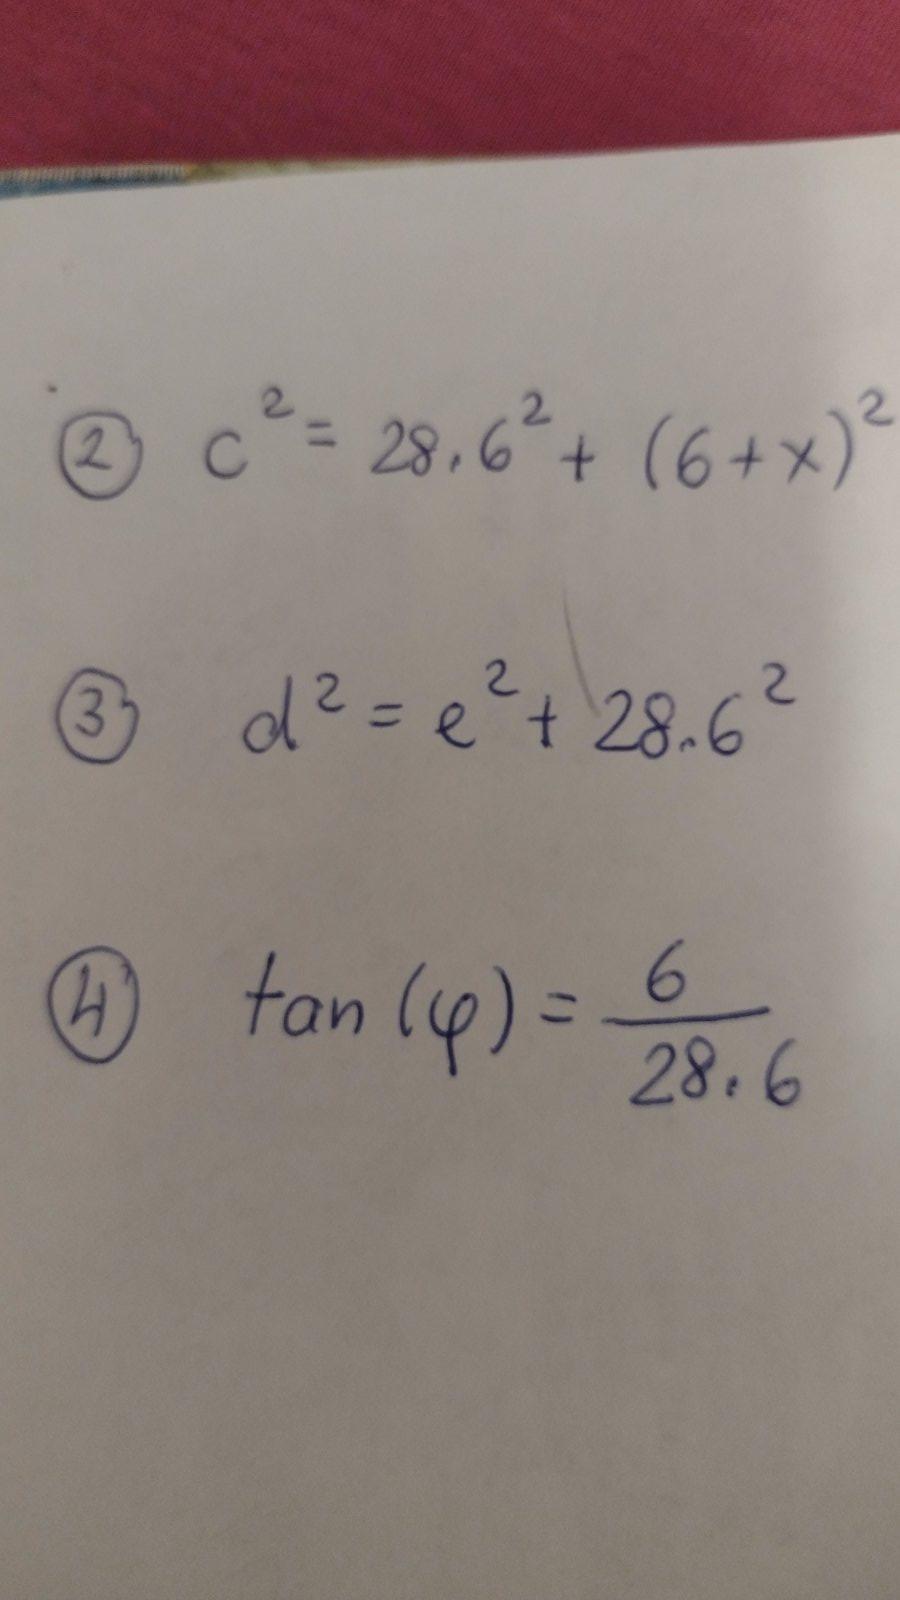 ② c² = 28.6² + (6+x)²
③ d² = e² + 28.6²
④ tan(φ) = 6/28.6